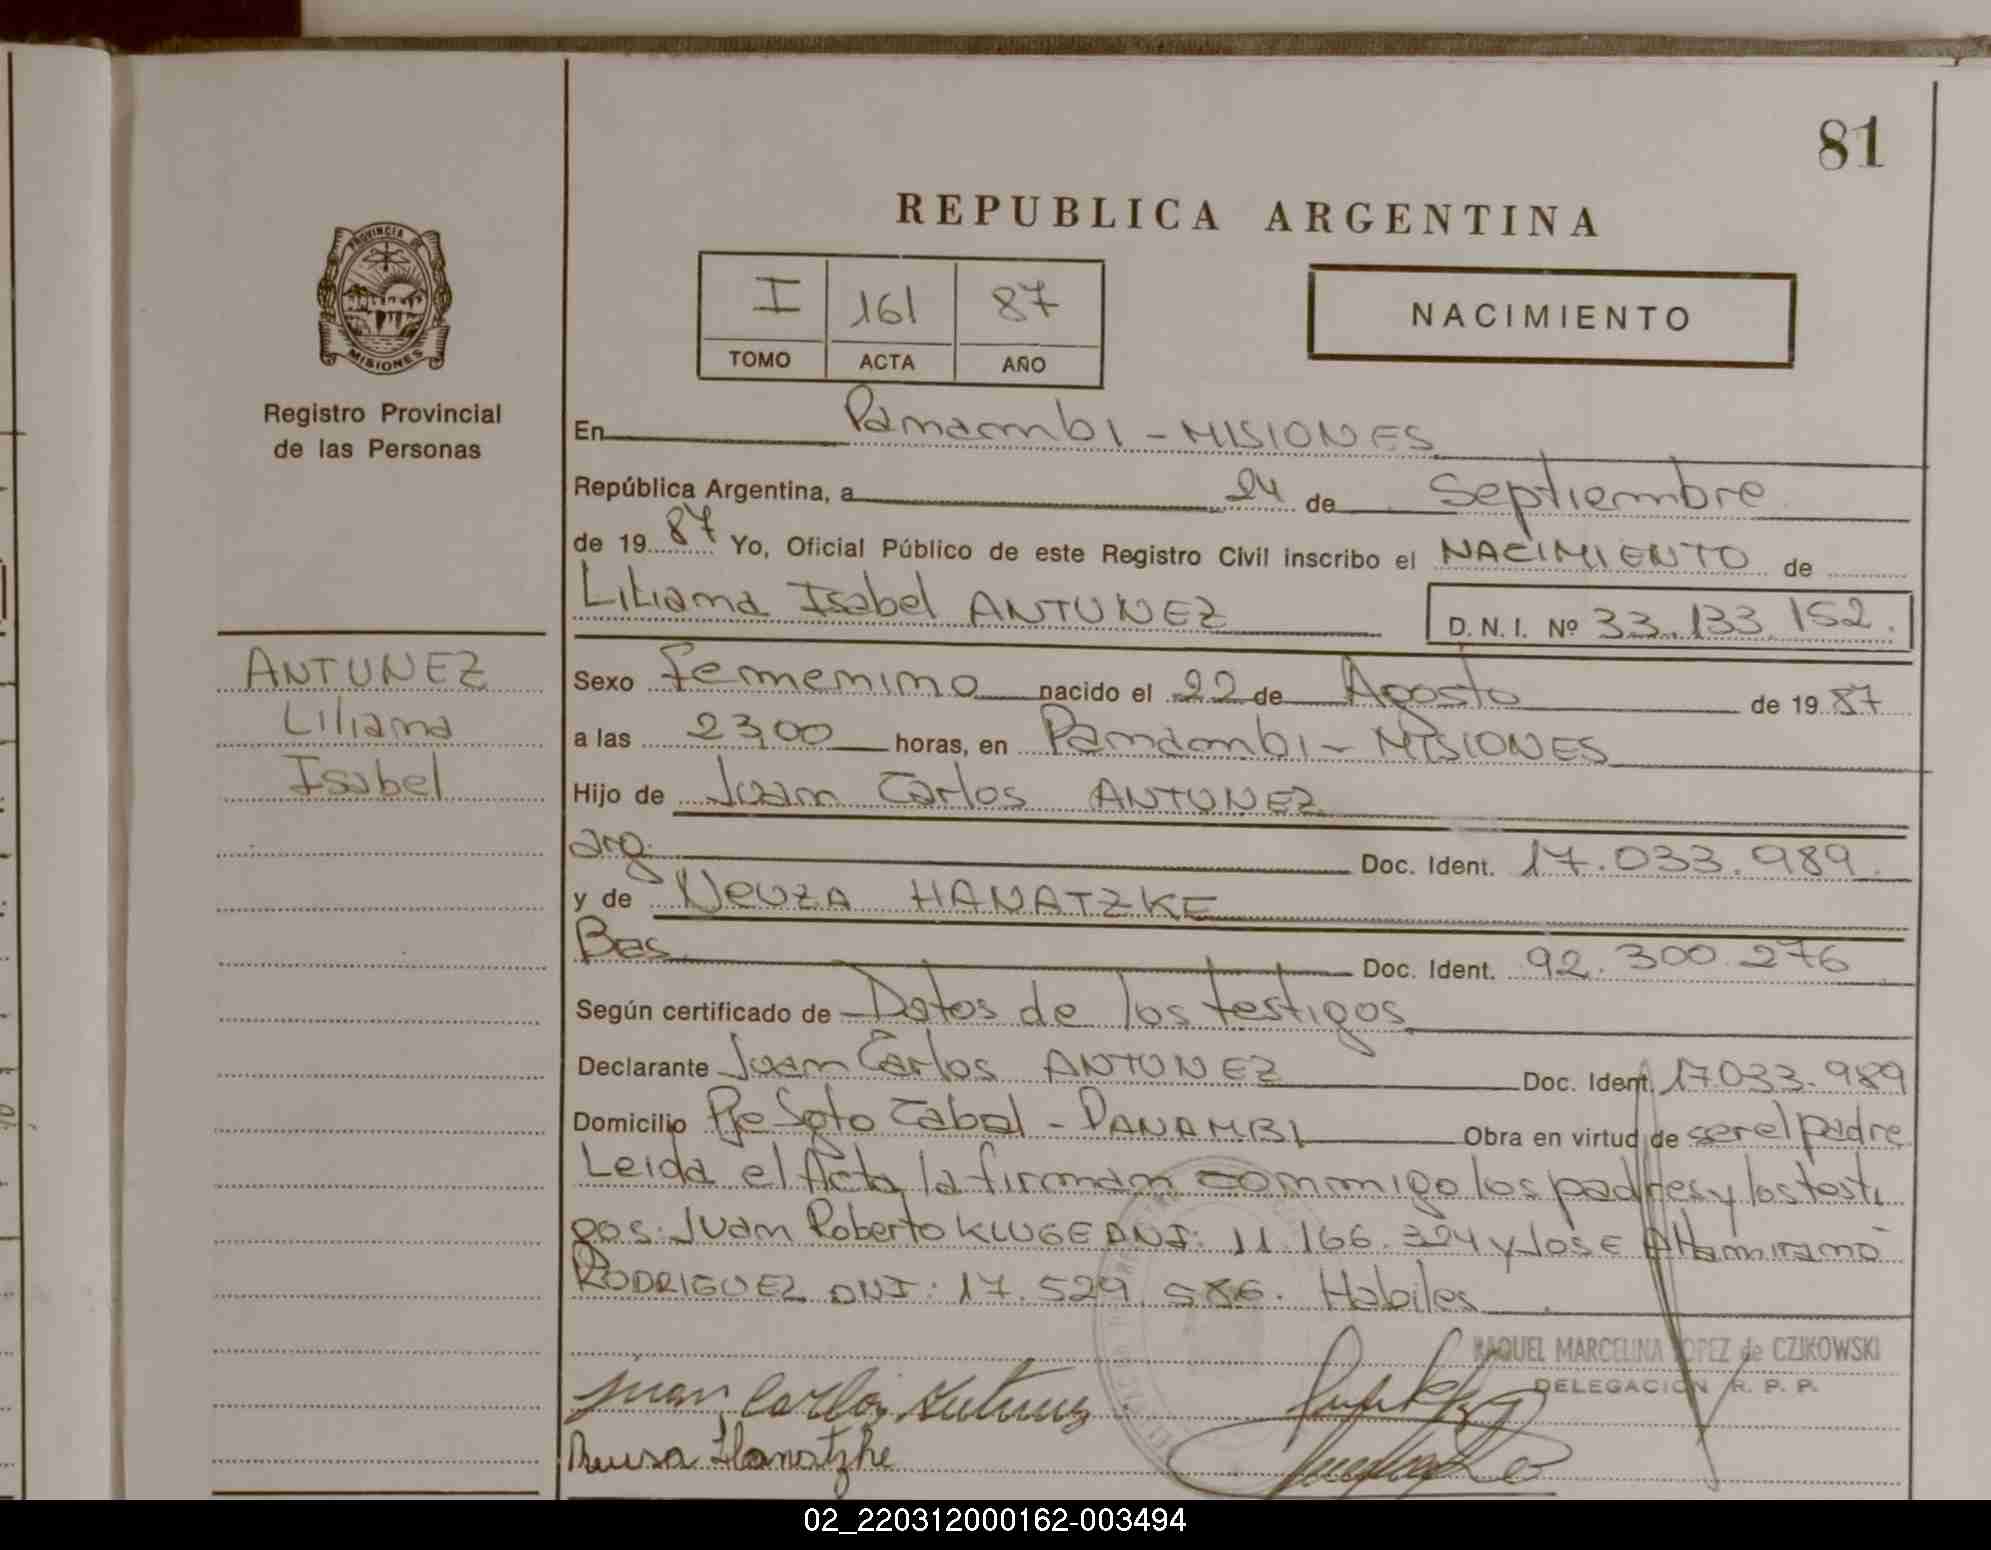 81
REPUBLICA ARGENTINA
PROVINCIA DE
MISIONES
Registro Provincial
de las Personas
I 161 87
TOMO ACTA AÑO
NACIMIENTO
En Panambi - MISIONES
República Argentina, a 24 de Septiembre
de 1987 Yo, Oficial Público de este Registro Civil inscribo el NACIMIENTO de
Liliana Isabel ANTUNEZ D. N. I. Nº 33.133.152.
ANTUNEZ
Liliana
Isabel
Sexo femenino nacido el 22 de Agosto de 1987
a las 23,00 horas, en Panambi - MISIONES
Hijo de Juan Carlos ANTUNEZ
arg. Doc. Ident. 17.033.989.
y de Neuza HANATZKE
Bas. Doc. Ident. 92.300.276
Según certificado de Datos de los testigos
Declarante Juan Carlos ANTUNEZ Doc. Ident. 17.033.989
Domicilio Pje Soto Cabal - PANAMBI Obra en virtud de ser el padre
Leida el Acta la firman conmigo los padres y los testi
gos: Juan Roberto KLUGE DNI: 11.166.324 y José Altamirano
RODRIGUEZ DNI: 17.529.586. Habiles
RAQUEL MARCELINA LOPEZ de CZIKOWSKI
DELEGACION R. P. P.
Juan Carlos Antunez
Neusa Hanatzke
02_220312000162-003494